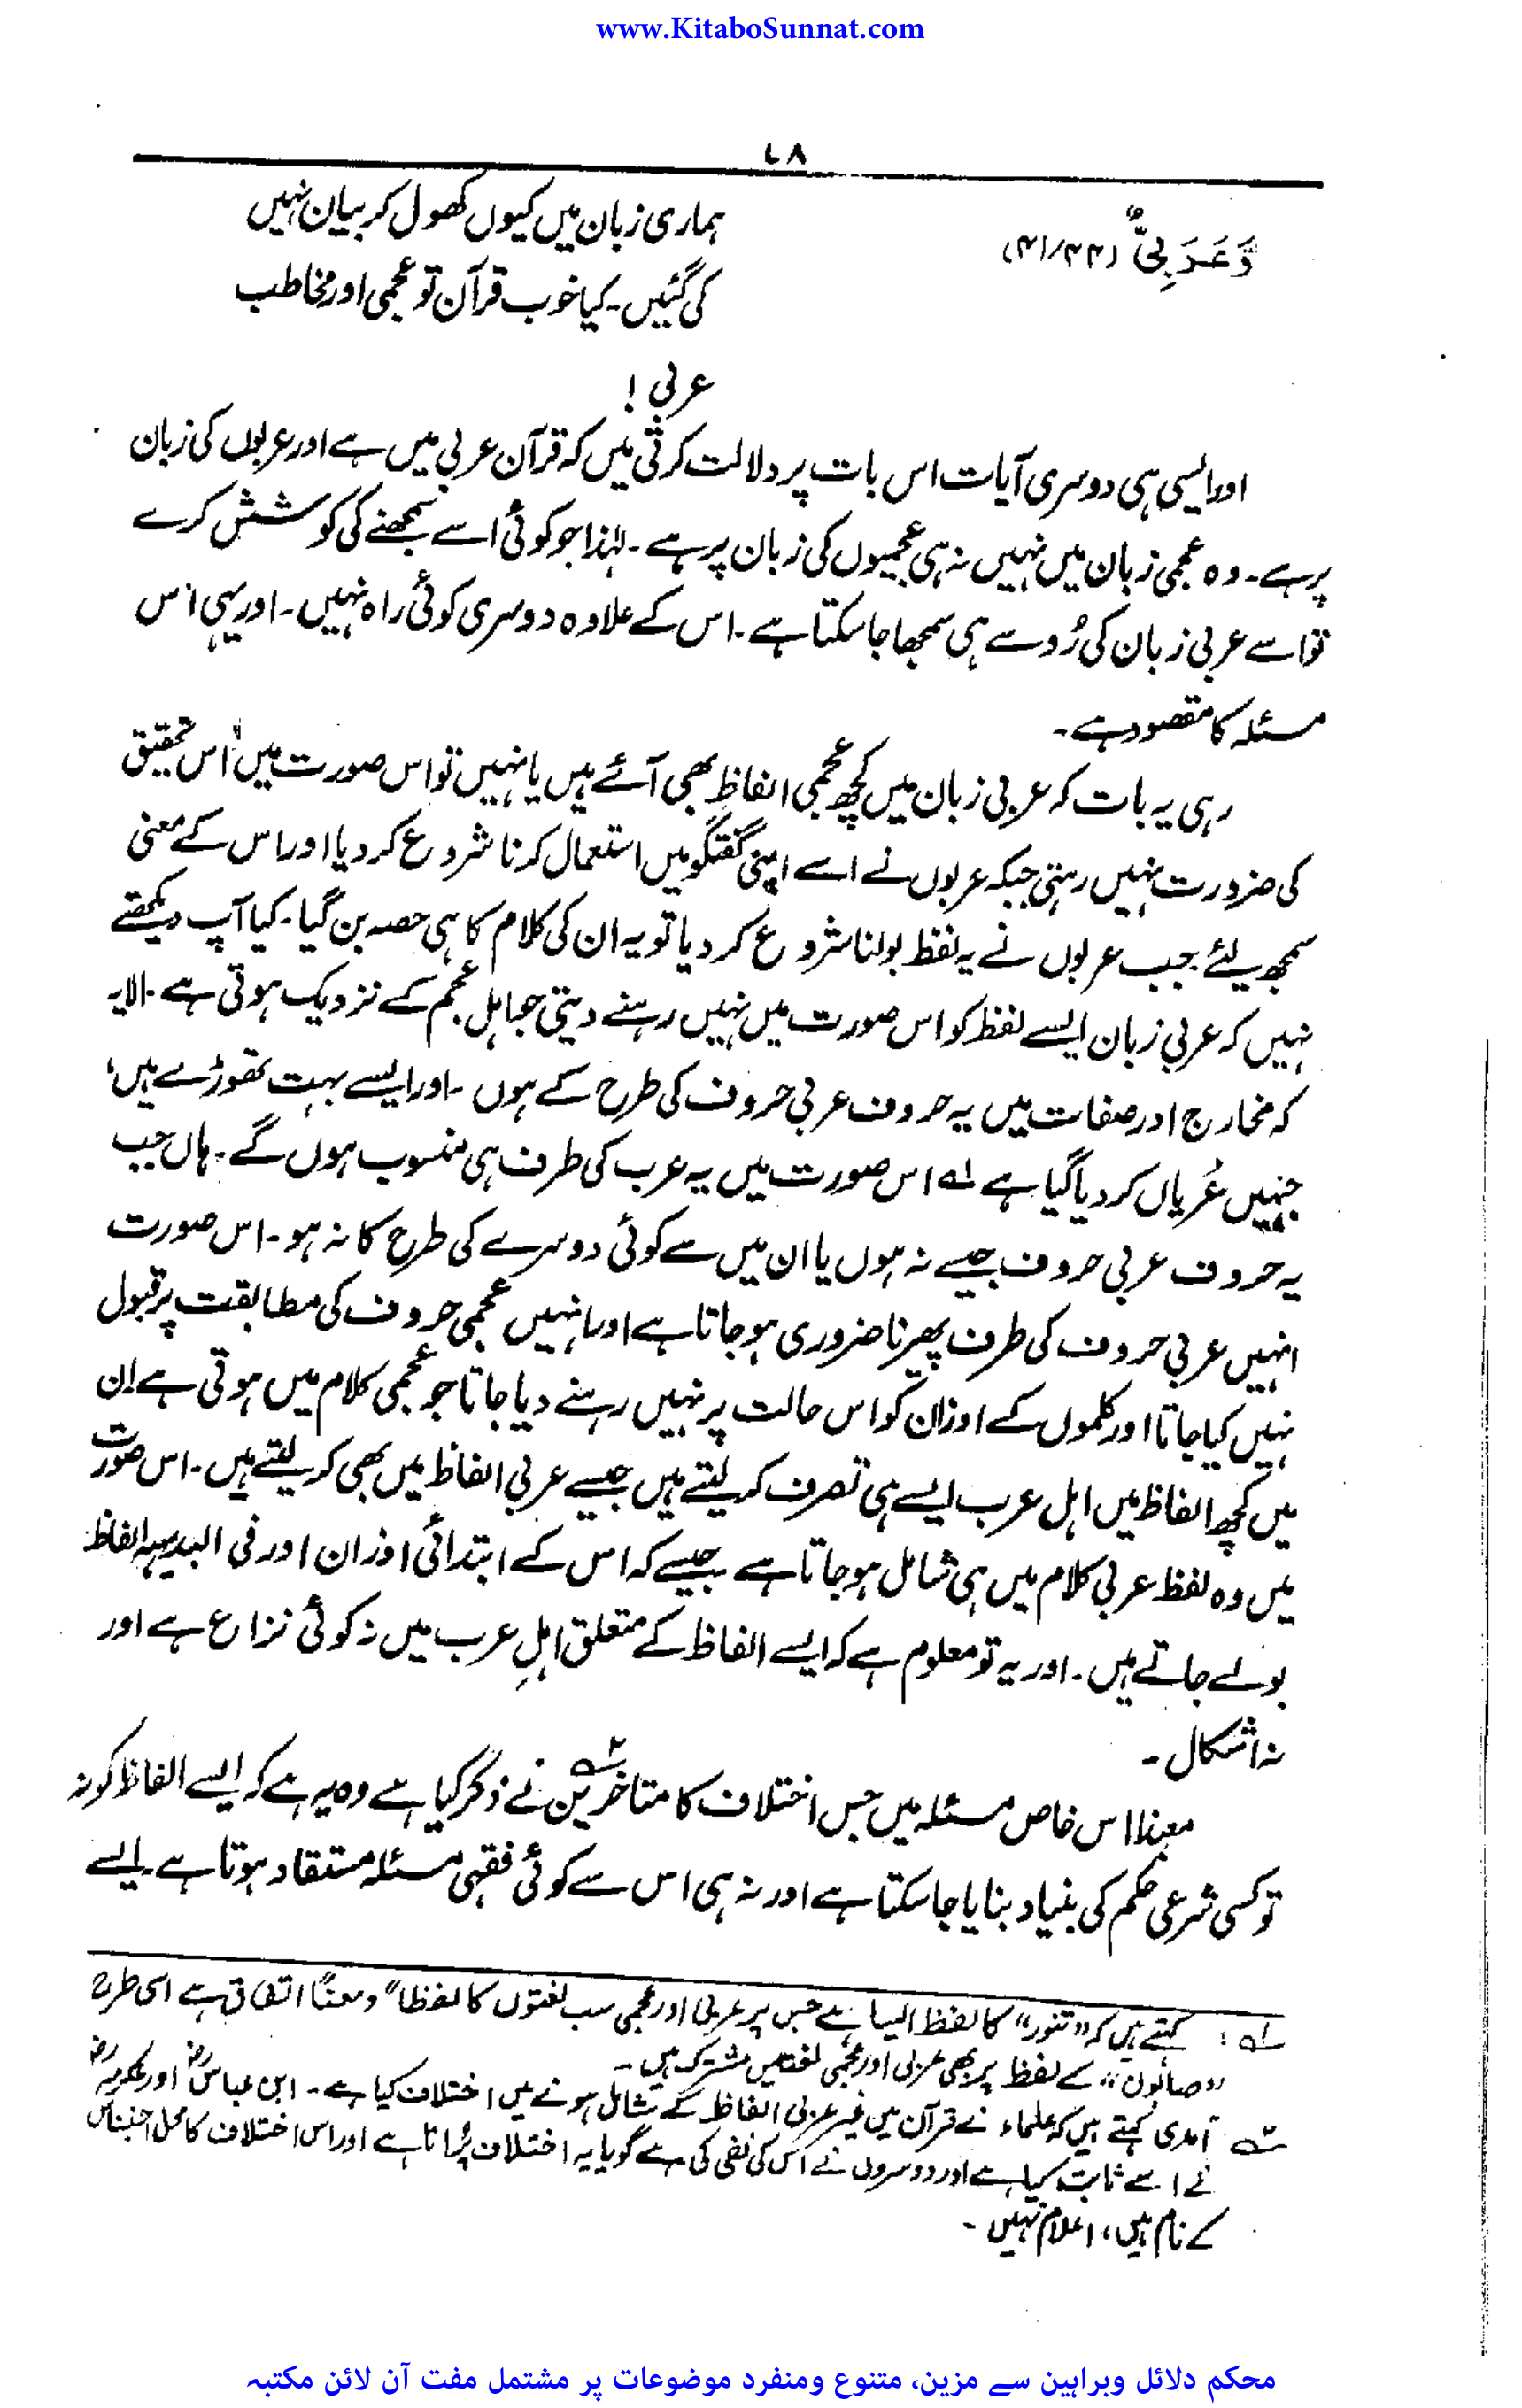 www.KitaboSunnat.com
۷۸
وَّعَرَبِیٌّ ؕ (۴۱/۴۴)
ہماری زبان میں کیوں کھول کر بیان نہیں
کی گئیں۔ کیا خوب قرآن تو عجمی اور مخاطب
عربی!
اور ایسی ہی دوسری آیات اس بات پر دلالت کرتی ہیں کہ قرآن عربی میں ہے اور عربوں کی زبان
پر ہے۔ وہ عجمی زبان میں نہیں نہ ہی عجمیوں کی زبان پر ہے۔ لہٰذا جو کوئی اسے سمجھنے کی کوشش کرے
تو اسے عربی زبان کی رُو سے ہی سمجھا جا سکتا ہے۔ اس کے علاوہ دوسری کوئی راہ نہیں۔ اور یہی اس
مسئلہ کا مقصود ہے۔
رہی یہ بات کہ عربی زبان میں کچھ عجمی الفاظ بھی آئے ہیں یا نہیں تو اس صورت میں اس تحقیق
کی ضرورت نہیں رہتی جبکہ عربوں نے اسے اپنی گفتگو میں استعمال کرنا شروع کر دیا اور اس کے معنی
سمجھ لیئے جب عربوں نے یہ لفظ بولنا شروع کر دیا تو یہ ان کی کلام کا ہی حصہ بن گیا۔ کیا آپ دیکھتے
نہیں کہ عربی زبان ایسے لفظ کو اس صورت میں نہیں رہنے دیتی جو اہل عجم کے نزدیک ہوتی ہے۔ الا یہ
کہ مخارج اور صفات میں یہ حروف عربی حروف کی طرح کے ہوں۔ اور ایسے بہت تھوڑے ہیں،
جنہیں عُریاں کر دیا گیا ہے لہ اس صورت میں یہ عرب کی طرف ہی منسوب ہوں گے۔ ہاں جب
یہ حروف عربی حروف جیسے نہ ہوں یا ان میں سے کوئی دوسرے کی طرح کا نہ ہو۔ اس صورت
انہیں عربی حروف کی طرف پھیرنا ضروری ہو جاتا ہے اور انہیں عجمی حروف کی مطابقت پر قبول
نہیں کیا جاتا اور کلموں کے اوزان کو اس حالت پر نہیں رہنے دیا جاتا جو عجمی کلام میں ہوتی ہے ان
میں کچھ الفاظ میں اہل عرب ایسے ہی تصرف کر لیتے ہیں جیسے عربی الفاظ میں بھی کر لیتے ہیں۔ اس صورت
میں وہ لفظ عربی کلام میں ہی شامل ہو جاتا ہے جیسے کہ اس کے ابتدائی اوزان اور فی البدیہہ الفاظ
بولے جاتے ہیں۔ اور یہ تو معلوم ہے کہ ایسے الفاظ کے متعلق اہلِ عرب میں نہ کوئی نزاع ہے اور
نہ اشکال۔
معہذا اس خاص مسئلہ میں جس اختلاف کا متاخرین ۲ نے ذکر کیا ہے وہ یہ ہے کہ ایسے الفاظ کو نہ
تو کسی شرعی حکم کی بنیاد بنایا جا سکتا ہے اور نہ ہی اس سے کوئی فقہی مسئلہ مستفاد ہوتا ہے۔ ایسے
لہ: کہتے ہیں کہ "تنور" کا لفظ ایسا ہے جس پر عربی اور عجمی سب لغتوں کا لفظاً و معنًا اتفاق ہے اسی طرح
"صابون" کے لفظ پر بھی عربی اور عجمی لغتیں مشترک ہیں۔
۲ آمدی کہتے ہیں کہ علماء نے قرآن میں غیر عربی الفاظ کے شامل ہونے میں اختلاف کیا ہے۔ ابن عباسؓ اور عکرمہؓ
نے اسے ثابت کیا ہے اور دوسروں نے اس کی نفی کی ہے گویا یہ اختلاف پُرانا ہے اور اس اختلاف کا محل اجناس
کے نام ہیں، اعلام نہیں۔
محکم دلائل وبراہین سے مزین، متنوع ومنفرد موضوعات پر مشتمل مفت آن لائن مکتبہ